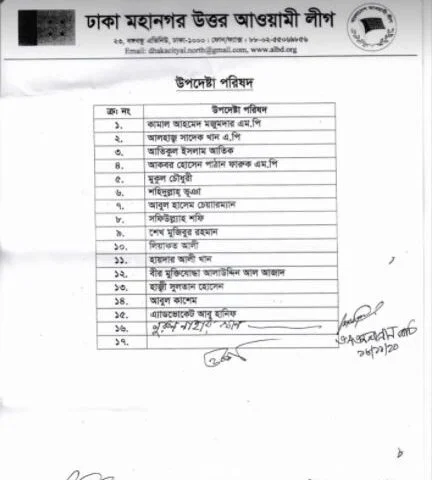 ঢাকা মহানগর উত্তর আওয়ামী লীগ
২৩, বঙ্গবন্ধু এভিনিউ, ঢাকা-১০০০। ফোন/ফ্যাক্স : ৮৮-০২-৫৫০৬৮৫৬
Email: dhakacityal.north@gmail.com, www.albd.org
উপদেষ্টা পরিষদ
ক্র: নং উপদেষ্টা পরিষদ
১. কামাল আহমেদ মজুমদার এম.পি
২. আলহাজ্ব সাদেক খান এ.পি
৩. আতিকুল ইসলাম আতিক
৪. আকবর হোসেন পাঠান ফারুক এম.পি
৫. মুকুল চৌধুরী
৬. শহিদুল্লাহ্ ভূঞা
৭. আবুল হাসেম চেয়ারম্যান
৮. সফিউল্ল্যাহ শফি
৯. শেখ মুজিবুর রহমান
১০. লিয়াকত আলী
১১. হায়দার আলী খান
১২. বীর মুক্তিযোদ্ধা আলাউদ্দিন আল আজাদ
১৩. হাজ্বী সুলতান হোসেন
১৪. আবুল কাশেম
১৫. এ্যাডভোকেট আবু হানিফ
১৬.
১৭.